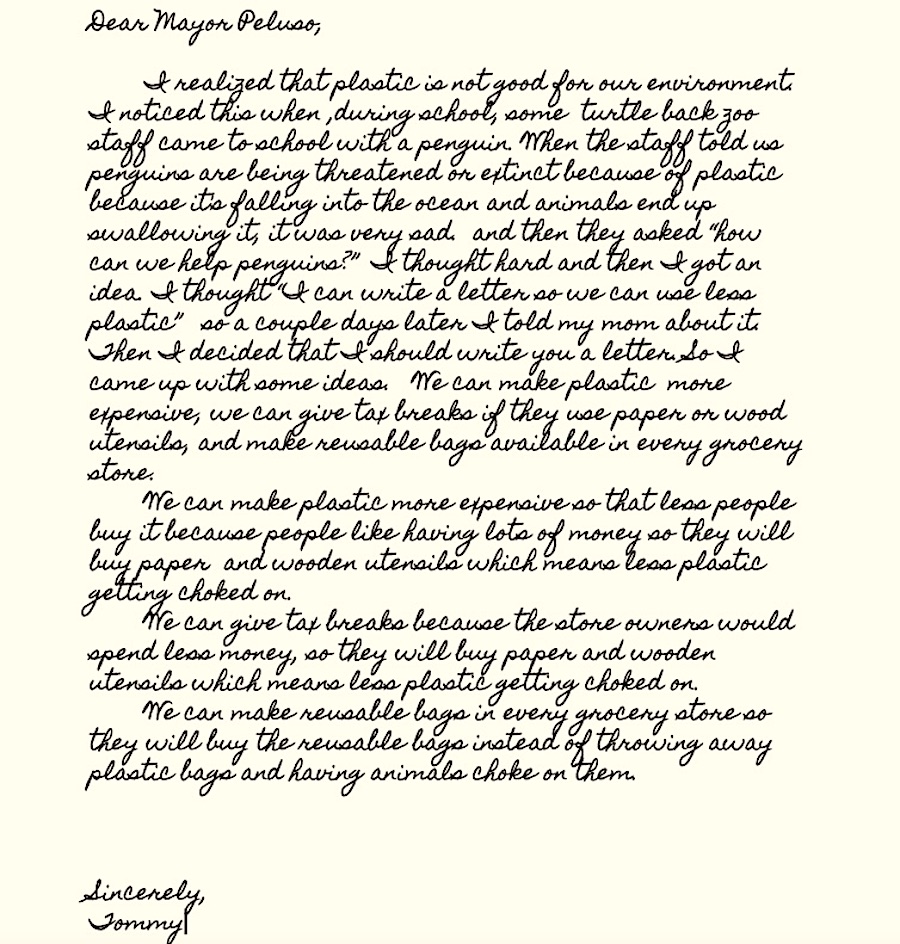 Dear Mayor Peluso,
I realized that plastic is not good for our environment.
I noticed this when ,during school, some turtle back zoo
staff came to school with a penguin. When the staff told us
penguins are being threatened or extinct because of plastic
because its falling into the ocean and animals end up
swallowing it, it was very sad. and then they asked “how
can we help penguins?” I thought hard and then I got an
idea. I thought “I can write a letter so we can use less
plastic” so a couple days later I told my mom about it.
Then I decided that I should write you a letter. So I
came up with some ideas. We can make plastic more
expensive, we can give tax breaks if they use paper or wood
utensils, and make reusable bags available in every grocery
store.
We can make plastic more expensive so that less people
buy it because people like having lots of money so they will
buy paper and wooden utensils which means less plastic
getting choked on.
We can give tax breaks because the store owners would
spend less money, so they will buy paper and wooden
utensils which means less plastic getting choked on.
We can make reusable bags in every grocery store so
they will buy the reusable bags instead of throwing away
plastic bags and having animals choke on them.
Sincerely,
Tommy